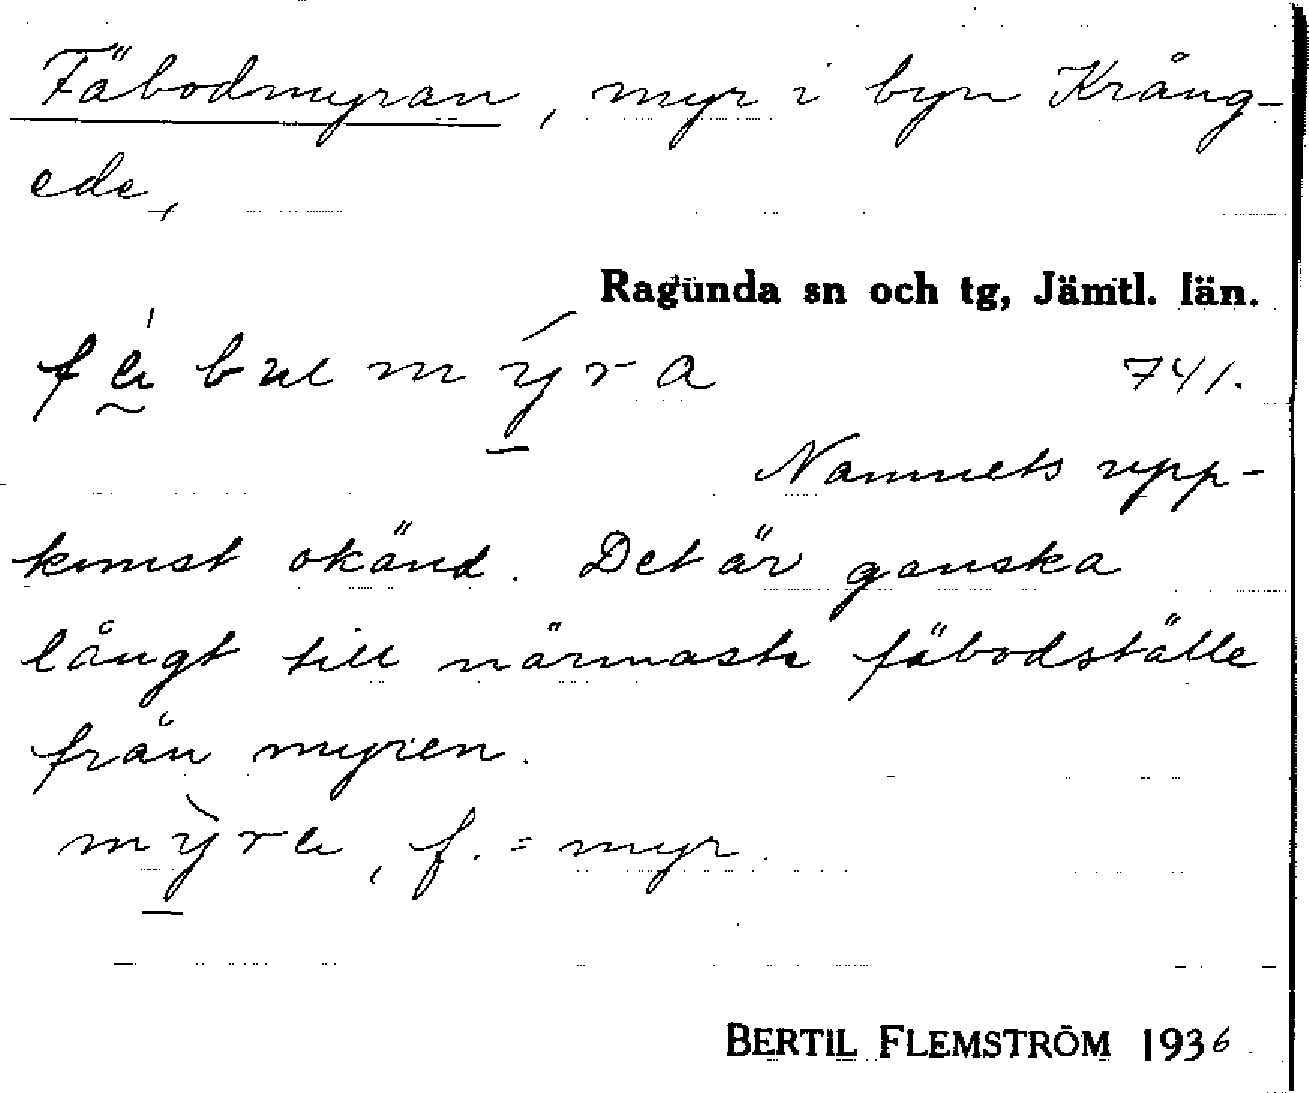 Fäbodmyran, myr i byn Krång-
ede,
Ragunda sn och tg, Jämtl. län.
741.
Namnets upp-
komst okänd. Det är ganska
långt till närmaste fäbodställe
från myren.
f. = myr.
BERTIL FLEMSTRÖM 1936